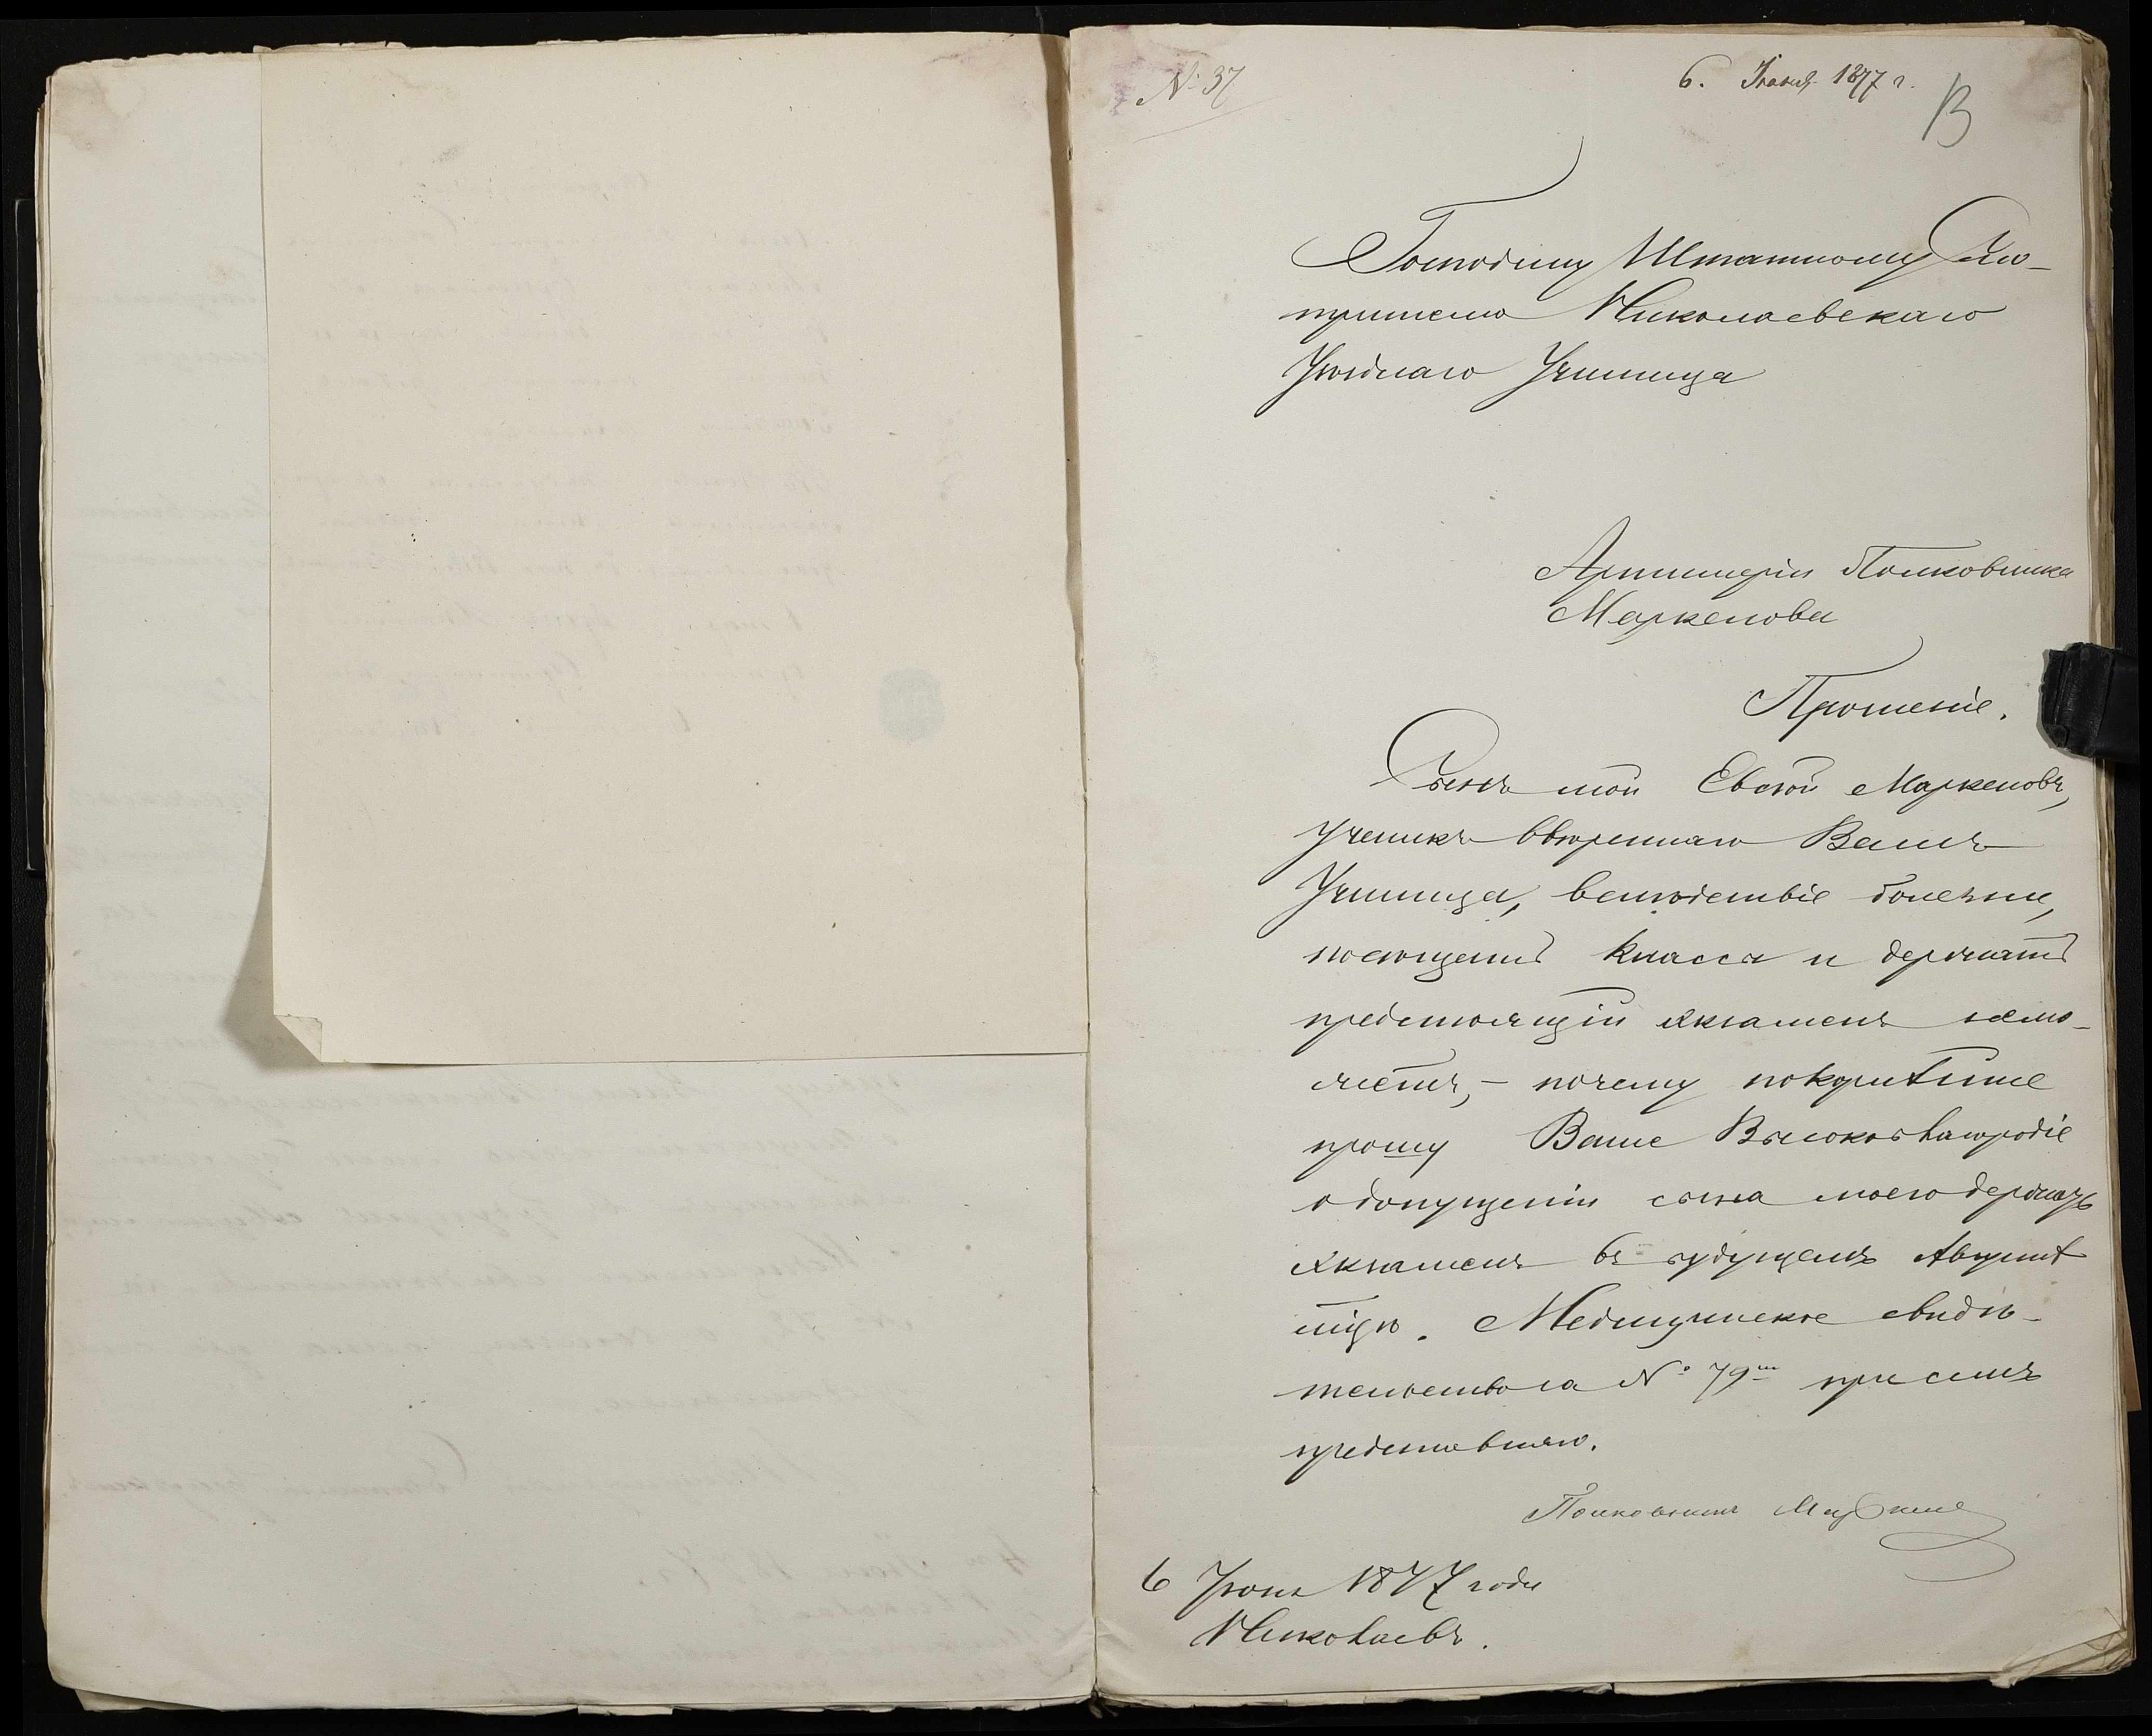 № 37
6. Іюня 1877 г.
13
Господину Штатному Смо-
трителю Николаевскаго
Уѣзднаго Училища
Артиллеріи Полковника
Маркелова
Прошеніе.
Сынъ мой Евсѣй Маркеловъ,
ученикъ ввѣреннаго Вамъ
Училища, вслѣдствіе болезни,
посѣщать класса и держать
предстоящій экзаменъ немо-
жетъ, – почему покорнѣйше
прошу Ваше Высокоблагородіе
о допущеніи сына моего держать
экзаменъ въ будущемъ Августѣ
мцѣ. Медицинское свидѣ-
тельство за № 79м при семъ
представляю.
Полковникъ
6 Іюня 1877 года
Николаевъ.